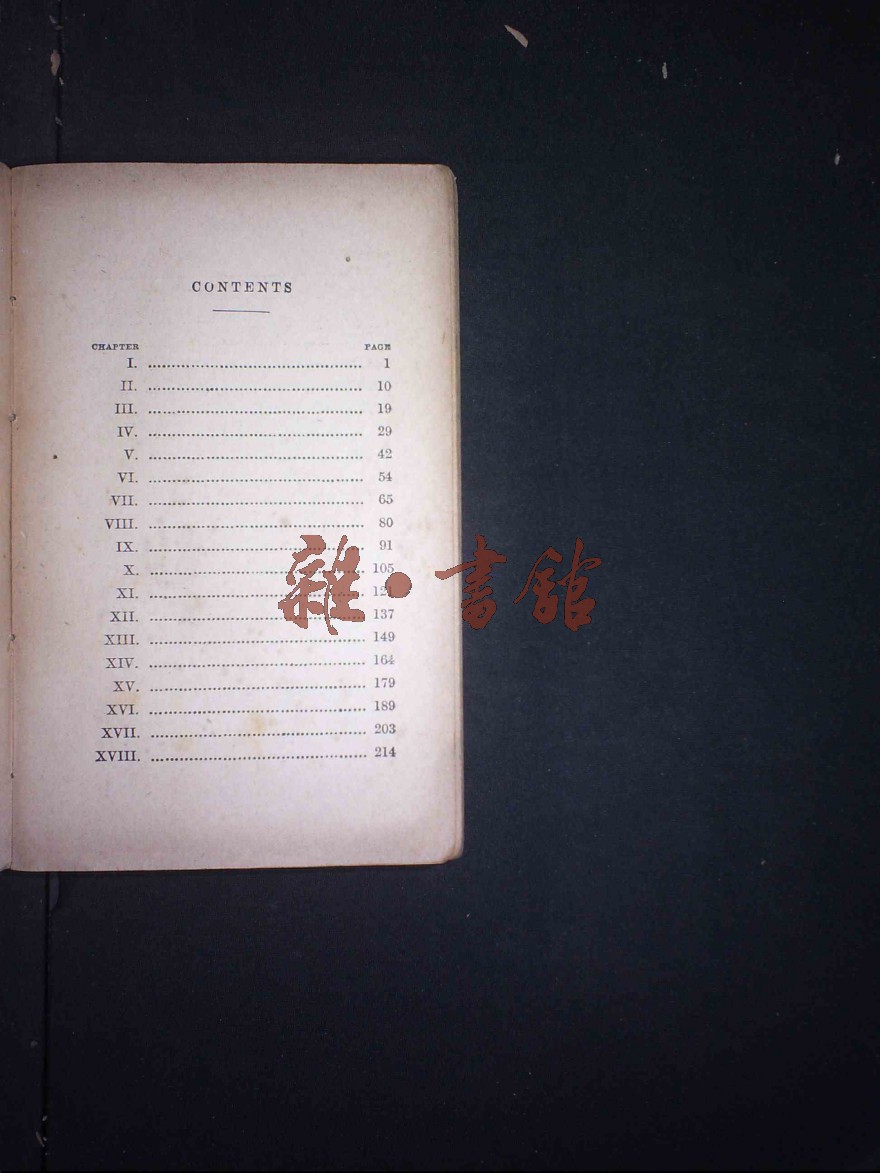 CONTENTS
CHAPTER PAGE
I. ............................................. 1
II. ............................................. 10
III. ............................................. 19
IV. ............................................. 29
V. ............................................. 42
VI. ............................................. 54
VII. ............................................. 65
VIII. ............................................. 80
IX. ............................................. 91
X. ............................................. 105
XI. .............................................
XII. ............................................. 137
XIII. ............................................. 149
XIV. ............................................. 164
XV. ............................................. 179
XVI. ............................................. 189
XVII. ............................................. 203
XVIII. ............................................. 214
雜·書館